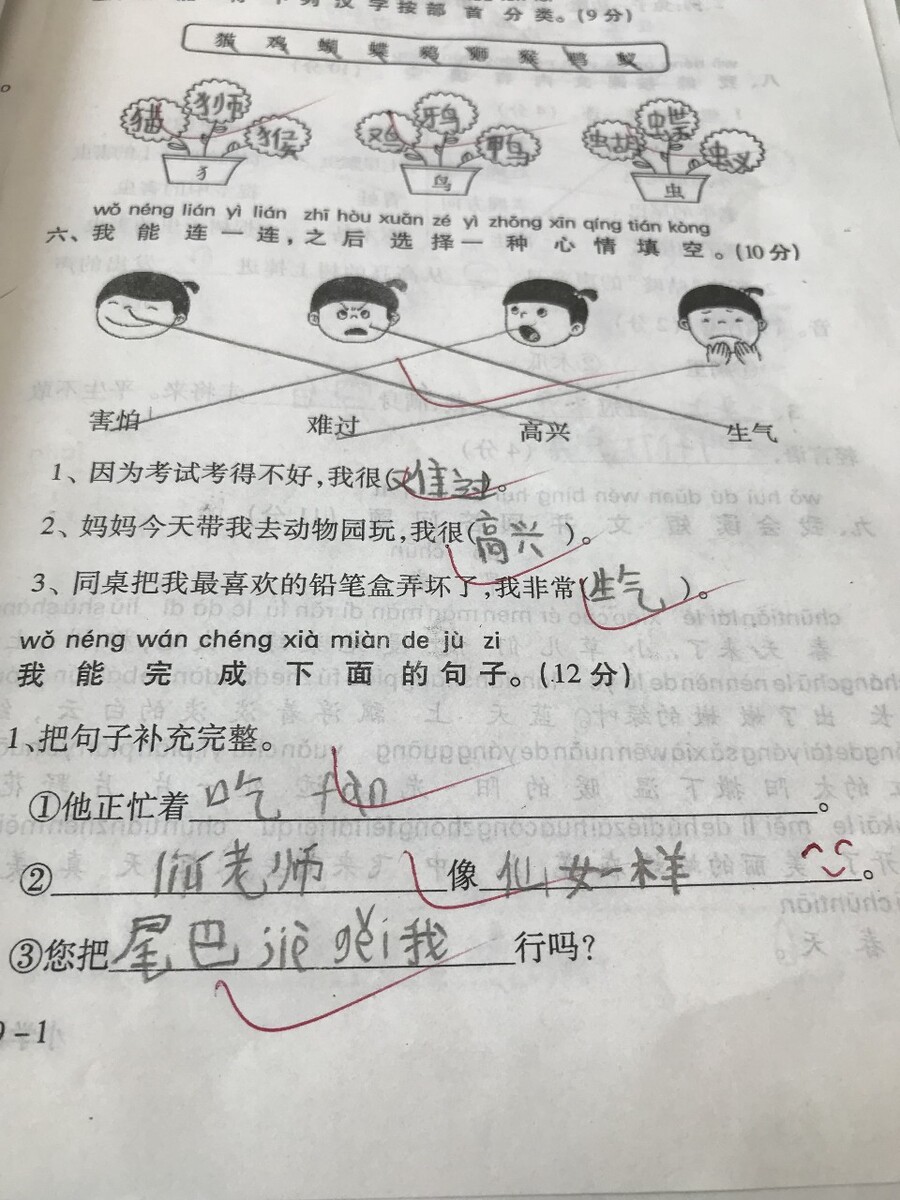 下列汉字按部首分类。(9分)
猫 鸡 蝴 蝶 鸦 狮 猴 鸭 蚁
猫 狮 猴 鸡 鸦 鸭 虫胡 蝶 蚁
犭 鸟 虫
wǒ néng lián yì lián zhī hòu xuǎn zé yì zhǒng xīn qíng tián kòng
六、我能连一连,之后选择一种心情填空。(10分)
害怕 难过 高兴 生气
1、因为考试考得不好,我很(难过)。
2、妈妈今天带我去动物园玩,我很(高兴)。
3、同桌把我最喜欢的铅笔盒弄坏了,我非常(生气)。
wǒ néng wán chéng xià miàn de jù zi
我能完成下面的句子。(12分)
1、把句子补充完整。
①他正忙着吃 fàn。
②老师像仙女一样。
③您把尾巴 jiè gěi 我行吗?
9-1